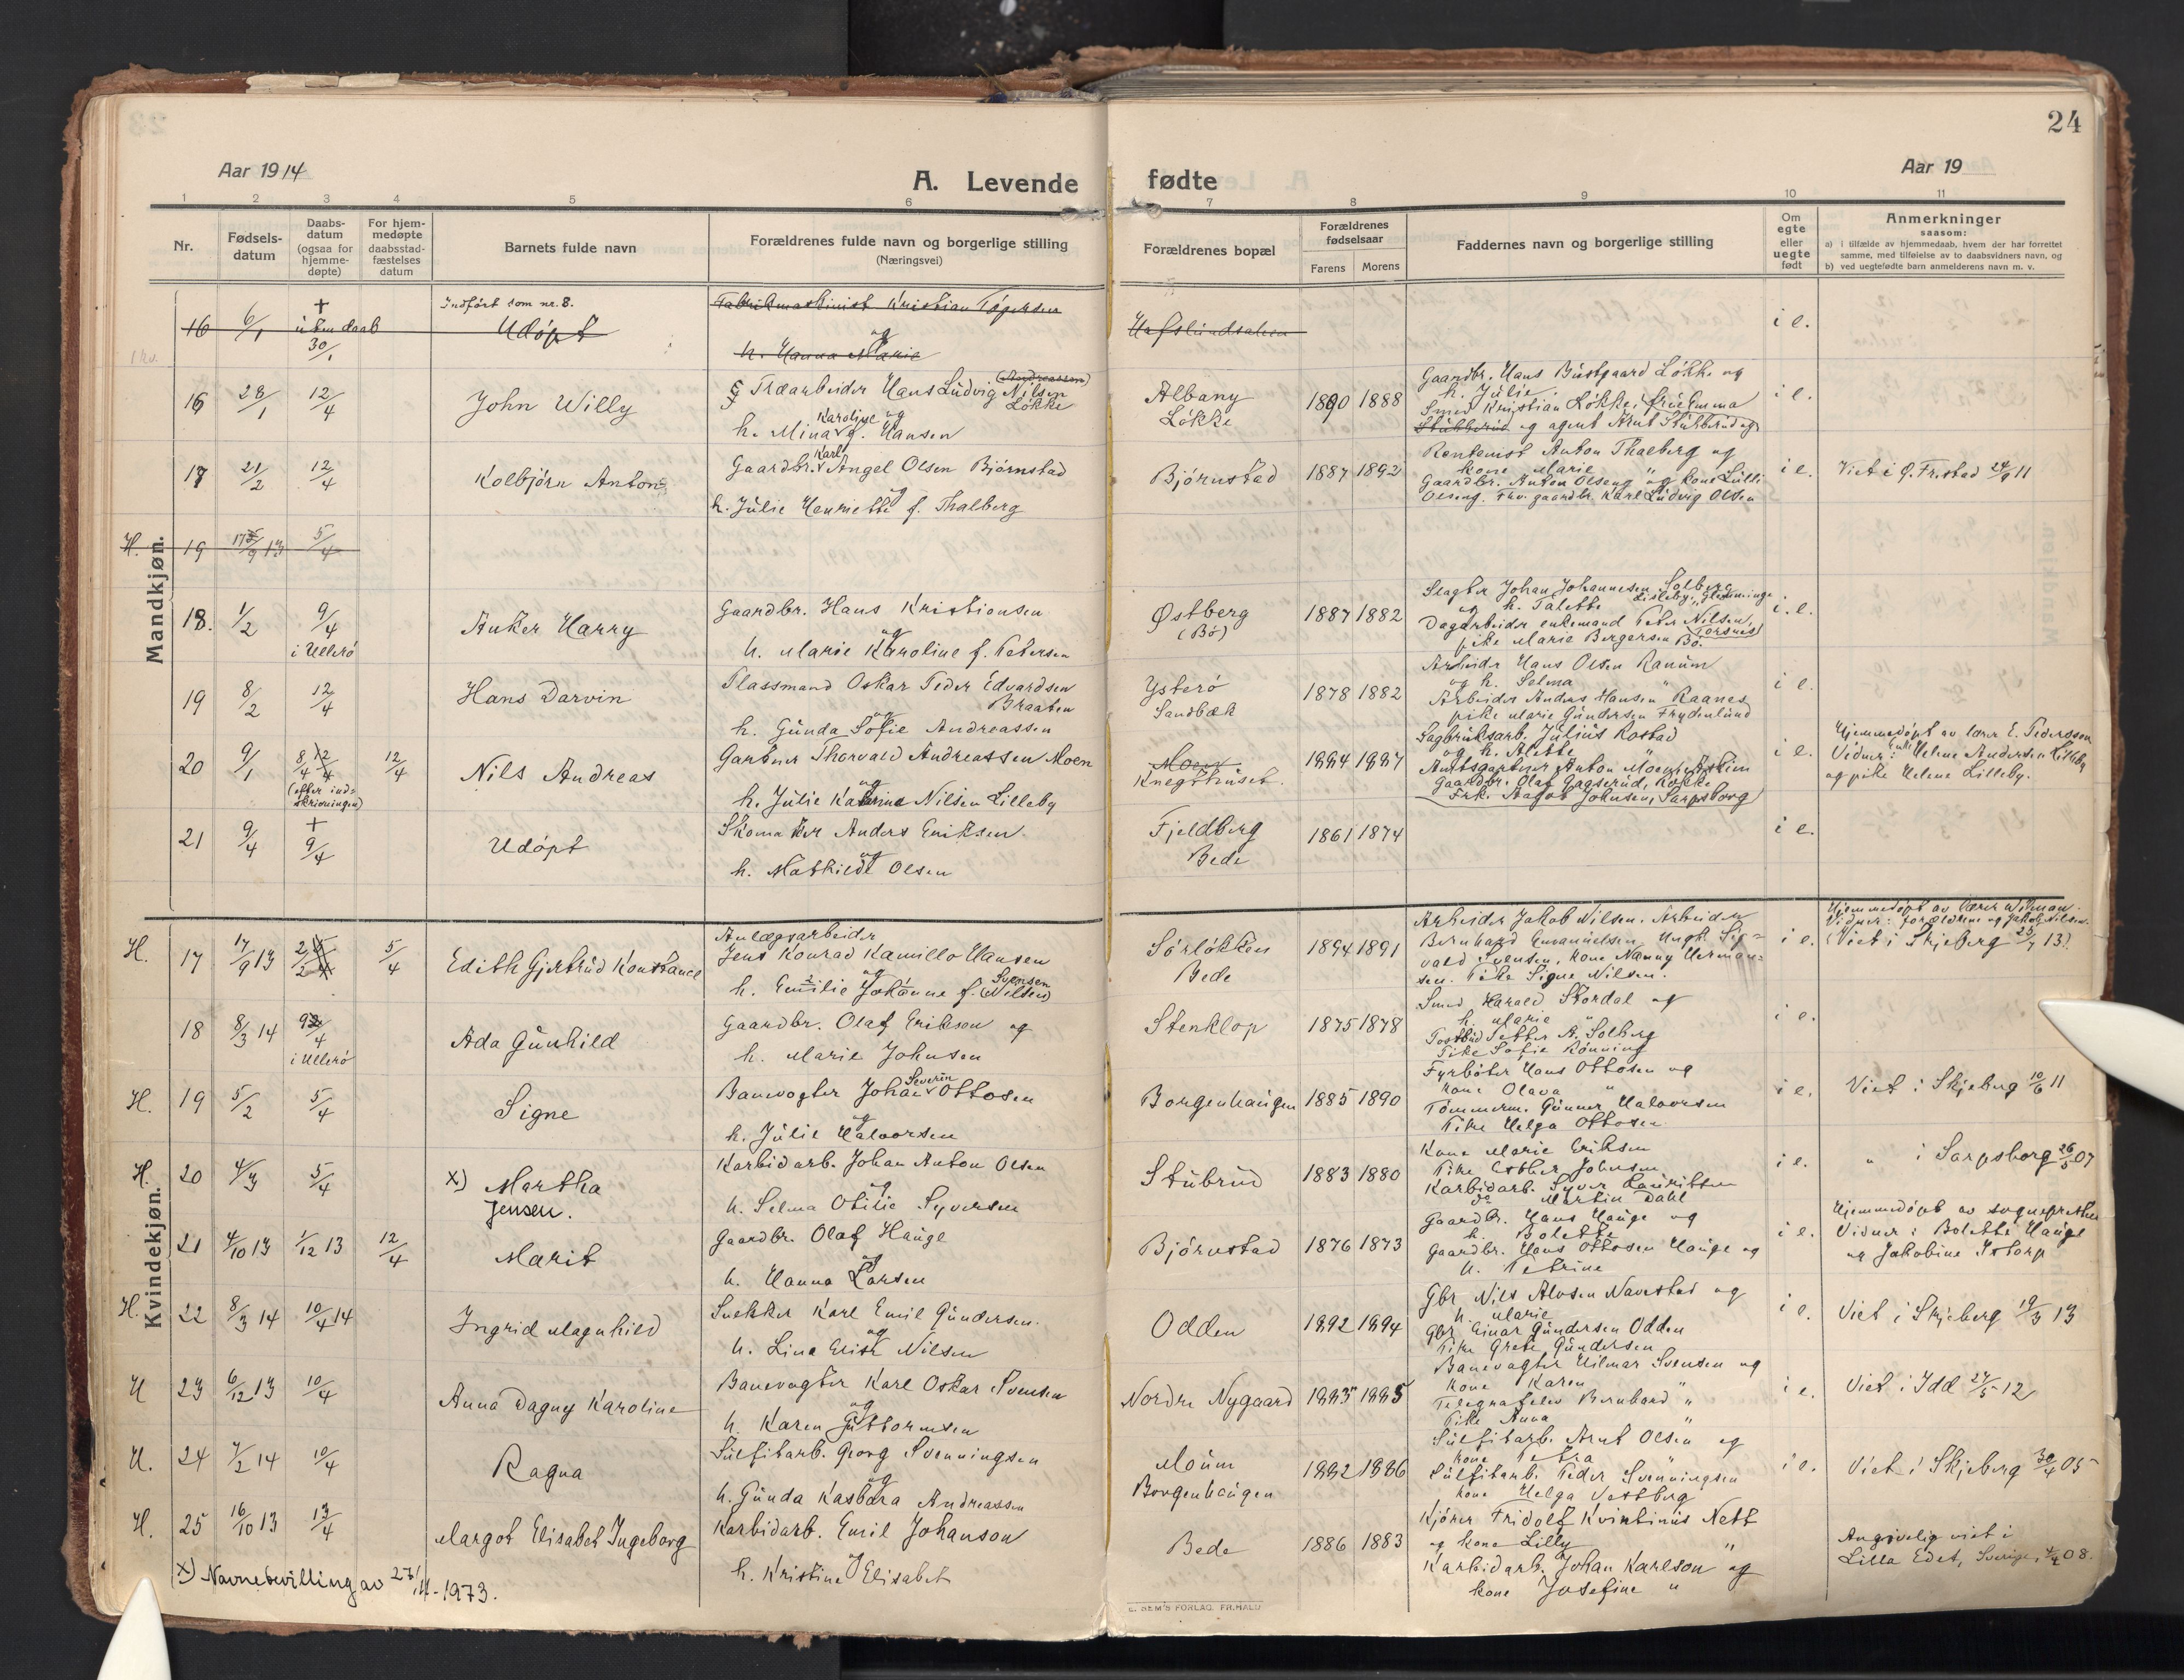 24
Aar 1914
A. Levende
fødte
Aar 19
1 2 3 4 5 6 7 8 9 10 11
Nr.
Fødsels-
datum
Daabs-
datum
(ogsaa for
hjemme-
døpte)
For hjem-
medøpte
daabsstad-
fæstelses
datum
Barnets fulde navn
Forældrenes fulde navn og borgerlige stilling
(Næringsvei)
Forældrenes bopæl
Forældrenes
fødselsaar
Farens Morens
Faddernes navn og borgerlige stilling
Om
egte
eller
uegte
født
Anmerkninger
saasom:
a) i tilfælde av hjemmedaab, hvem der har forrettet
samme, med tilføielse av to daabsvidners navn, og
b) ved uegtefødte barn anmelderens navn m. v.
Mandkjøn.
Indført som nr. 8.
16 6/1 + uten daab 30/1 Udøpt
Fabrikmaskinist Kristian
og
h. Hanna Marie
i e.
16 28/1 12/4 John Willy
Træarbeider Hans Ludvig Nilsen
Løkke
(Andreassen)
Karoline og
h. Mina g. Hansen
Albany
Løkke
1890 1888
Gaardbr. Hans Bustgaard Løkke og
h. Julie.
Smed Kristian Løkke, frk Emma
Stubberud og agent Arnt Stubberud
i e.
17 21/2 12/4 Kolbjørn Anton
Gaardbr. Karl Angel Olsen Bjørnstad
og
h. Julie Henriette f. Thalberg
Bjørnstad 1887 1892
Rentenist Anton Thalberg og
kone Marie "
Gaardbr. Anton Olseng og kone Lulli
Olseng. gaardbr. Karl Ludvig Olsen
i e.
Viet i Ø. Fr.stad 24/9 11
H. 19 17/9 13 5/4
18. 1/2 9/4
i Ullerø
Anker Harry
Gaardbr. Hans Kristiansen
og
h. Marie Karoline f. Petersen
Østberg
(Bø)
1887 1882
Slagter Johan Johannesen Solberg
og h. Talette Lisleby, Glemminge
Dagarbeider enkemand Peter Nilsen,
pike Marie Bergersen Bø. Torsnes
i e.
19 8/2 12/4 Hans Darvin
Plassmand Oskar Peder Edvardsen
Braaten
og
h. Gunda Sofie Andreassen
Ysterø
Sandbæk
1878 1882
Arbeider Hans Olsen Ranum
og h. Selma "
Arbeider Anders Hansen Raanes
pike Marie Gundersen Frydenlund
i e.
20 9/1 8/4 12/4 12/4
(efter ind-
skrivningen)
Nils Andreas
Gartner Thorvald Andreassen Moen
og
h. Julie Katrine Nilsen Lilleby
Moen
Knegthuset.
1884 1887
Sagbruksarb. Julius Rostad
og h. Alette
Amtsgartner Anton Moen, Askim
Gaardbr. Olaf Gaaserud, Rokke
Frk. Aagot Johnsen, Sarpsborg
i e.
Hjemmedøpt av lærer E. Pedersen
Vidner: Helene Andersen Lilleby
og pike Helene Lilleby.
21 9/4 + 9/4 Udøpt
Skomaker Anders Eriksen
og
h. Mathilde Olsen
Fjeldberg
Bede
1861 1874
i e.
Kvindekjøn.
H. 17 17/9 13 2/2 5/4 Edith Gjertrud Konstance
Anlægsarbeider
Jens Konrad Kamillo Hansen
og
h. Emilie Johanne f. Svensen
(Nilsen)
Sørløkken
Bede
1894 1891
Arbeider Jakob Nilsen. Arbeider
Bernhard Emanuelsen, Ungk. Sig-
vald Svensen, kone Nanny Herman-
sen. Pike Signe Nilsen.
i e.
Hjemmedøpt av lærer Wilman.
Vidner: forældrene og Jakob Nilsen.
(Viet i Skjeberg 25/7 13.)
18 8/3 14 9/4
i Ullerø
Ada Gunhild
Gaardbr. Olaf Eriksen og
h. Marie Johnsen
Stenklop 1875 1878
Smed Harald Stordal og
h. Marie "
Postbud Petter A. Solberg
Pike Sofie Rønning
i e.
H. 19 5/2 5/4 Signe
Banevogter Johan Severin Ottosen
og
h. Julie Halvorsen
Borgenhaugen 1885 1890
Fyrbøter Hans Ottosen og
kone Olava "
Tømmerm. Gunner Halvorsen
Pike Helga Ottosen
i e.
Viet i Skjeberg 10/6 11
H. 20 4/3 5/4 x) Martha
Jensen.
Karbidarb. Johan Anton Olsen
og
h. Selma Otilie Syversen
Stubrud 1883 1880
Kone Marie Eriksen
Pike Esther Johnsen
Karbidarb. Syver Lauritsen
do Martin Dahl
i e.
" i Sarpsborg 26/5 07
21 4/10 13 1/12 13 12/4 Marit
Gaardbr. Olaf Hauge
og
h. Hanna Larsen
Bjørnstad 1876 1873
Gaardbr. Hans Hauge og
h. Bolette
Gaardbr. Hans Ottosen Hauge og
h. Petrine
i e.
Hjemmedøpt av sognepresten
Vidner: Bolette Hauge
og Jakobine Istorp
H. 22 8/3 14 10/4 14 Ingrid Magnhild
Snekker Karl Emil Gundersen
og
h. Lina Elise Nilsen
Odden 1892 1894
Gbr Nils Alvsen Navestad og
h. Marie
Gbr Einar Gundersen Odden
Pike Grete Gundersen
i e.
Viet i Skjeberg 19/3 13
H 23 6/12 13 10/4 Anna Dagny Karoline
Banevogter Karl Oskar Svensen
og
h. Karen Guttormsen
Nordre Nygaard 1885 1885
Banevogter Hilmar Svensen og
kone Karen "
Telegrafelev Bernhard "
Pike Anna "
i e.
Viet i Idd 27/5 12
H. 24 7/2 14 10/4 Ragna
Sulfitarb. Georg Svenningsen
og
h. Gunda Kasbara Andreassen
Moum
Borgenhaugen
1882 1886
Sulfitarb. Arnt Olsen og
kone Petra "
Sulfitarb. Peder Svenningsen
kone Helga Vestberg
i e.
Viet i Skjeberg 30/4 05
H. 25 16/10 13 13/4 Margot Elisabet Ingeborg
Karbidarb. Emil Johanson
og
h. Kristine Elisabet
Bede 1886 1883
Kjører Fridolf Kvintinus Nett
og kone Lilly "
Karbidarb. Johan Karlson og
kone Josefine "
Angivelig viet i
Lilla Edet, Sverige, 08.
x) Navnebevilling av 27/11-1973.
E. SEM'S FORLAG, FR.HALD